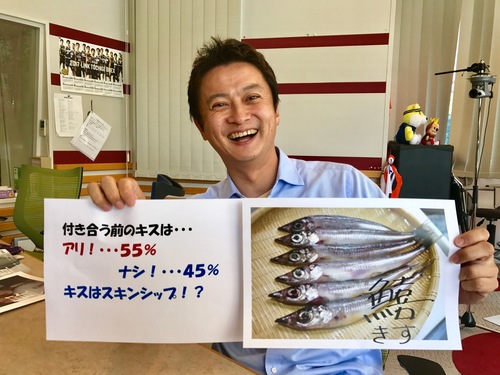 付き合う前のキスは・・・
アリ！・・・55%
ナシ！・・・45%
キスはスキンシップ！？
鱚
きす